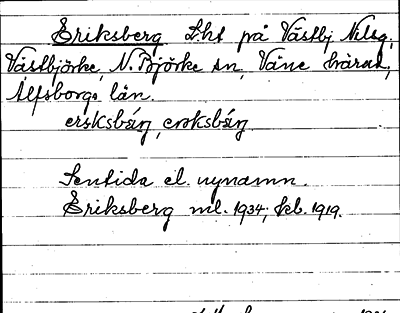 Eriksberg Lht på Västbj. Nilsg.
Västbjörke, N. Björke sn, Väne härad,
Älfsborgs län.
Sentida el. nynamn.
Eriksberg ml. 1934; kb. 1919.